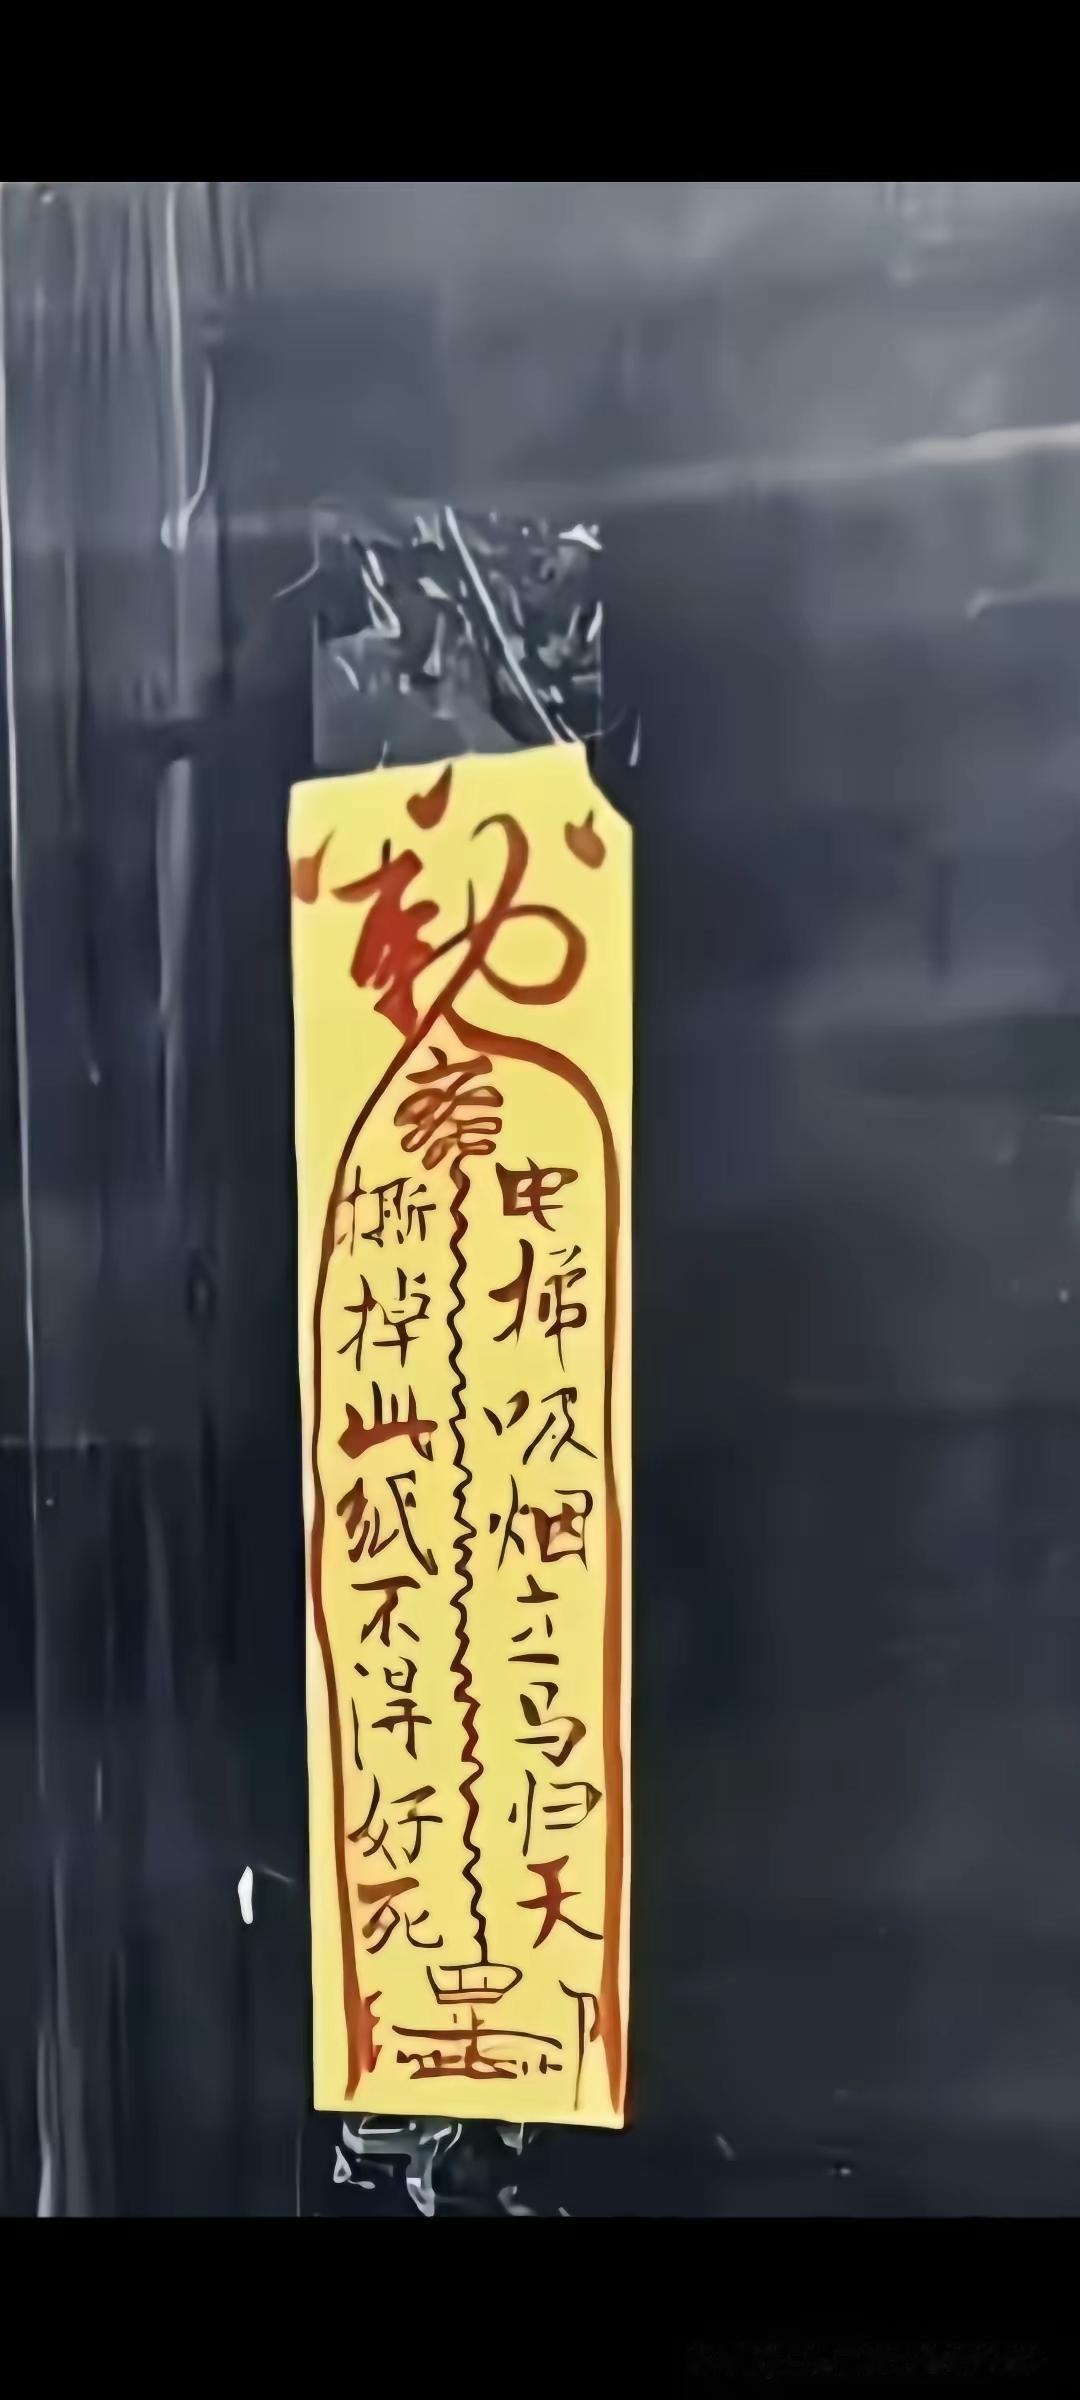 电梯吸烟立马归天
撕掉此纸不得好死